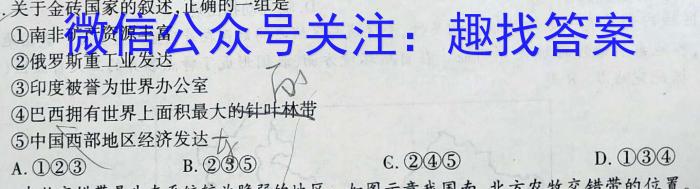 .关于金砖国家的叙述,正确的一组是
微信公众号关注：趣找答案
①南非矿产资源丰富
②俄罗斯重工业发达
③印度被誉为世界办公室
④巴西拥有世界上面积最大的针叶林带
⑤中国西部地区经济发达
A.①②③ B.②③⑤ C.②④⑤ D.①③④
如图示意我国南、北方农牧交错带的位置